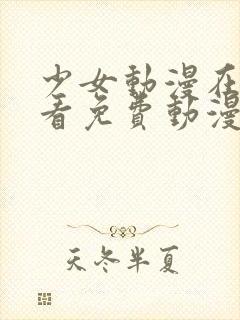 少女動漫在
看免費動漫
天冬半夏